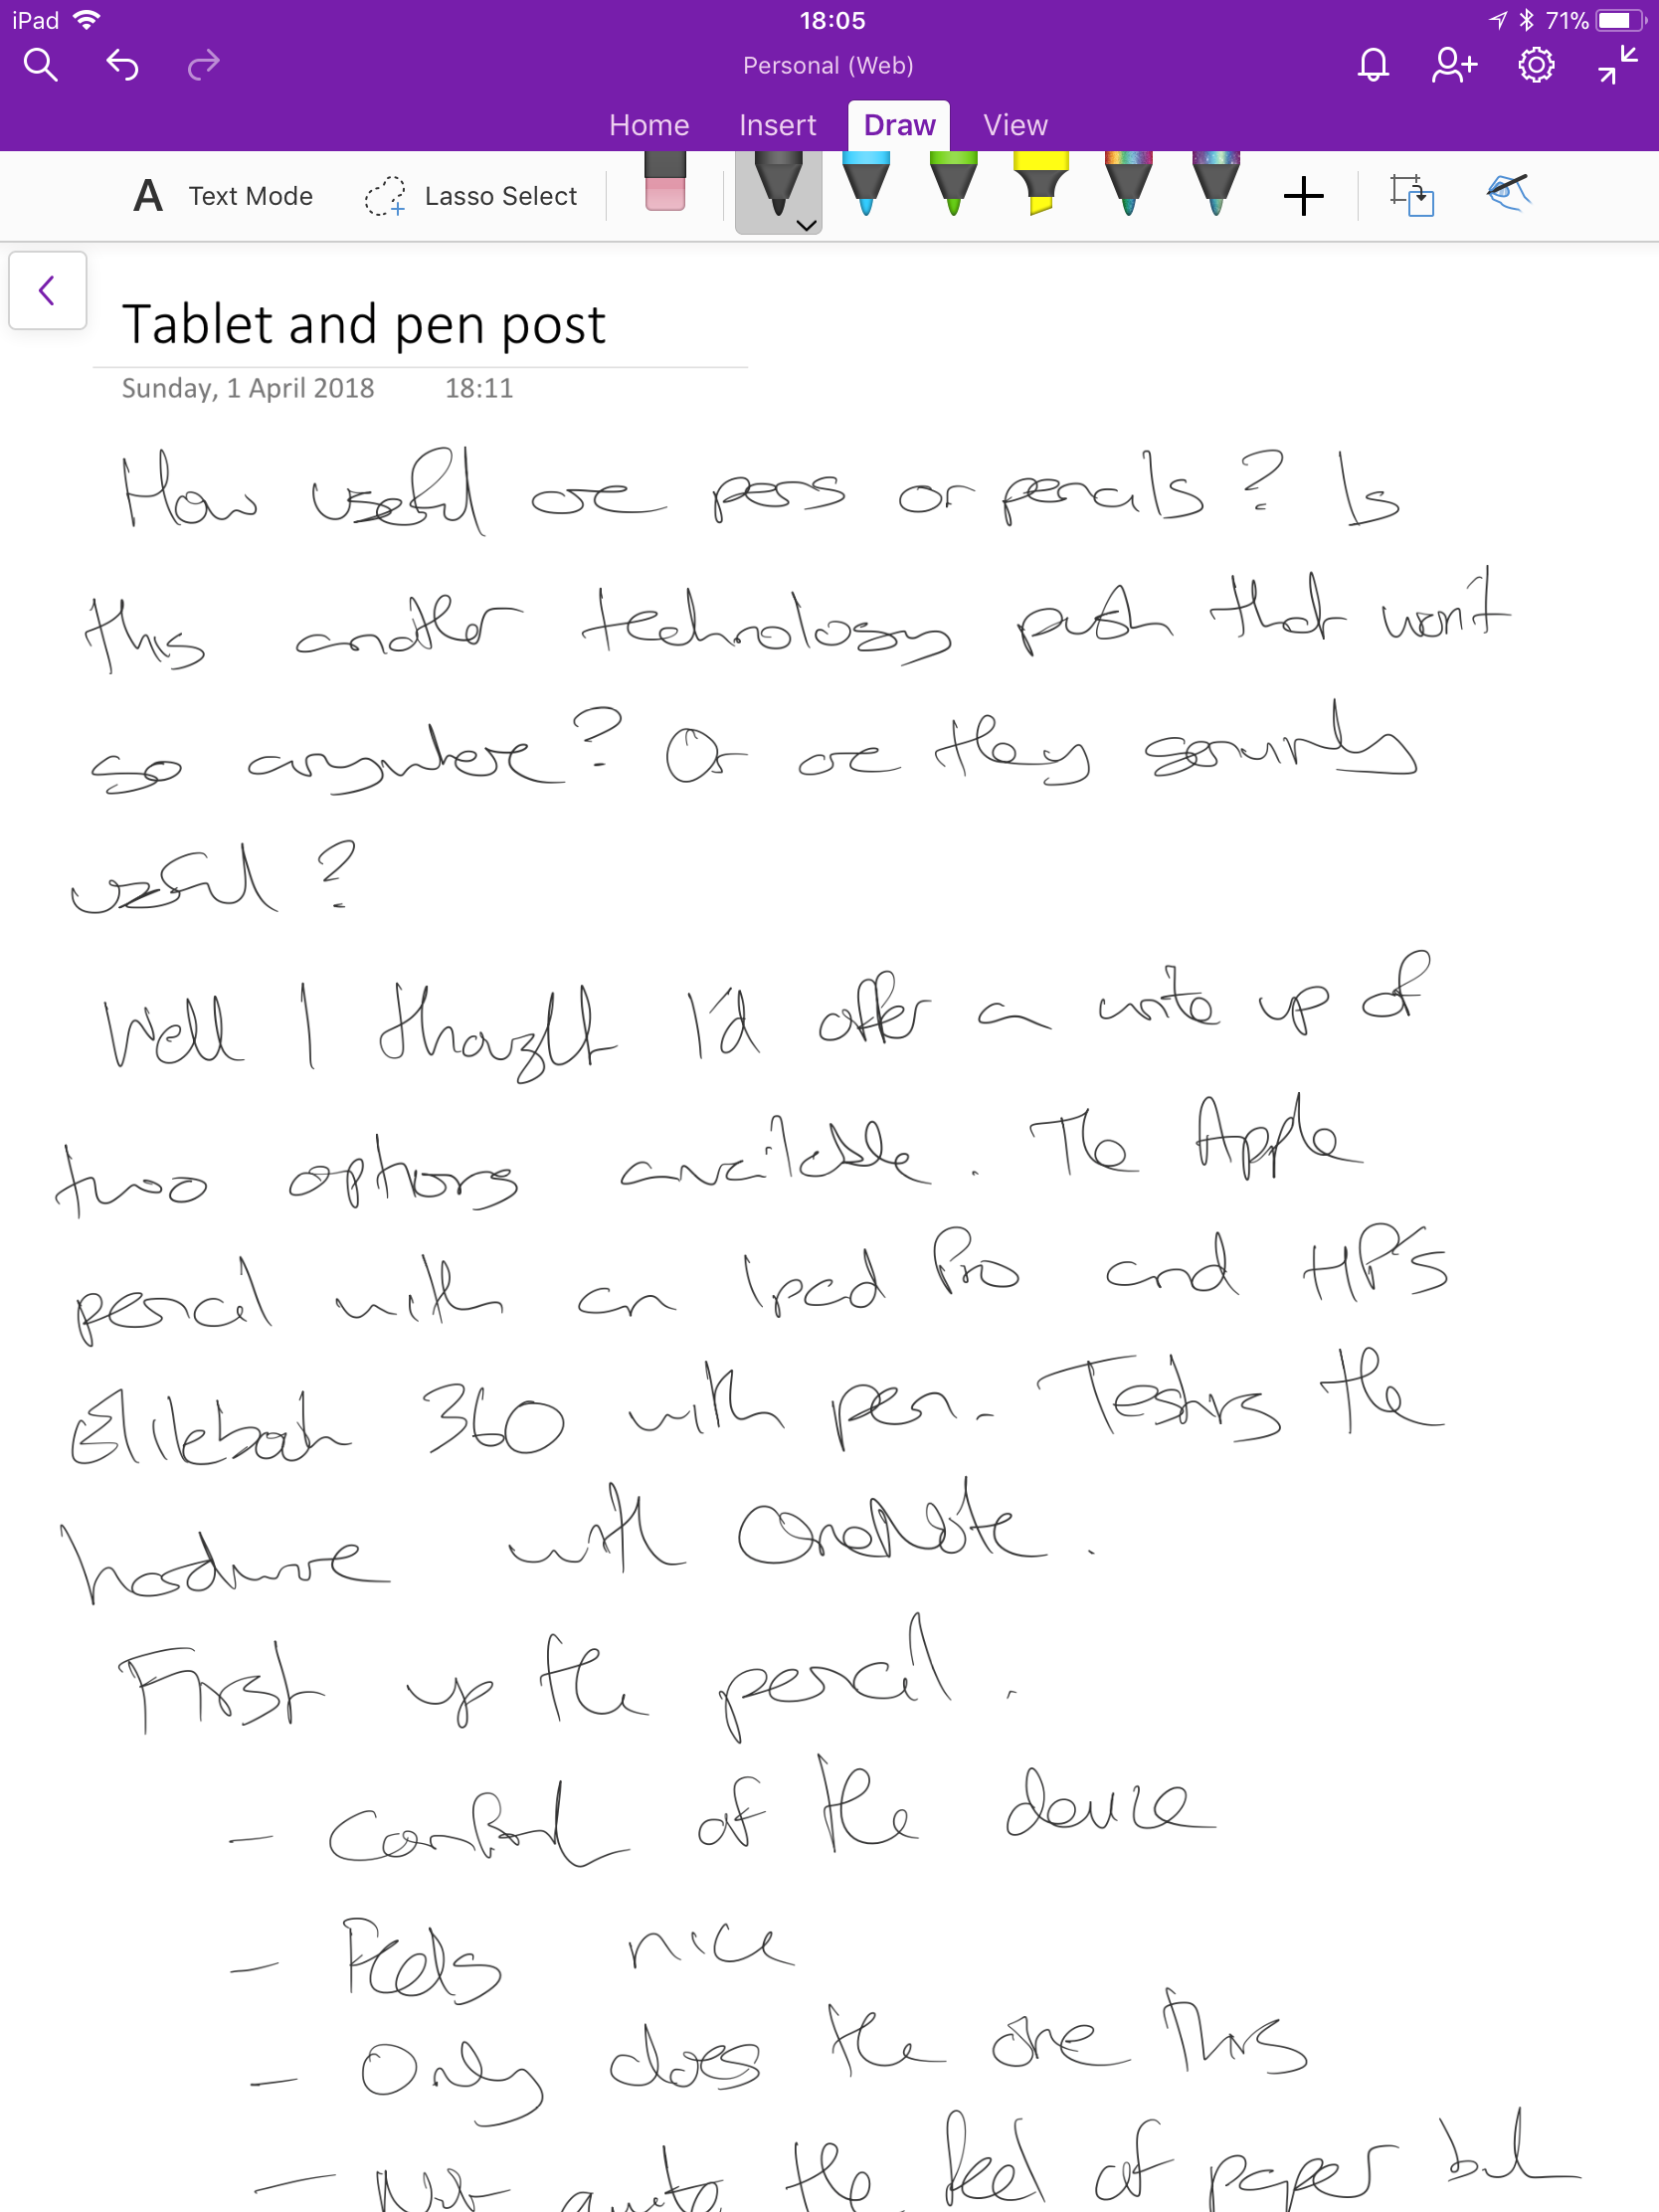 iPad 18:05 71%
Personal (Web)
Home Insert Draw View
A Text Mode Lasso Select
Tablet and pen post
Sunday, 1 April 2018 18:11
How useful are pens or pencils? Is
this another technology push that won't
go anywhere? Or are they genuinely
useful?
Well I thought I'd offer a write up of
two options available. The Apple
pencil with an Ipad Pro and HP's
Elitebook 360 with pen. Testing the
hardware with OneNote.
First up the pencil.
- Control of the device
- Feels nice
- Only does the one thing
- Not quite the feel of paper but